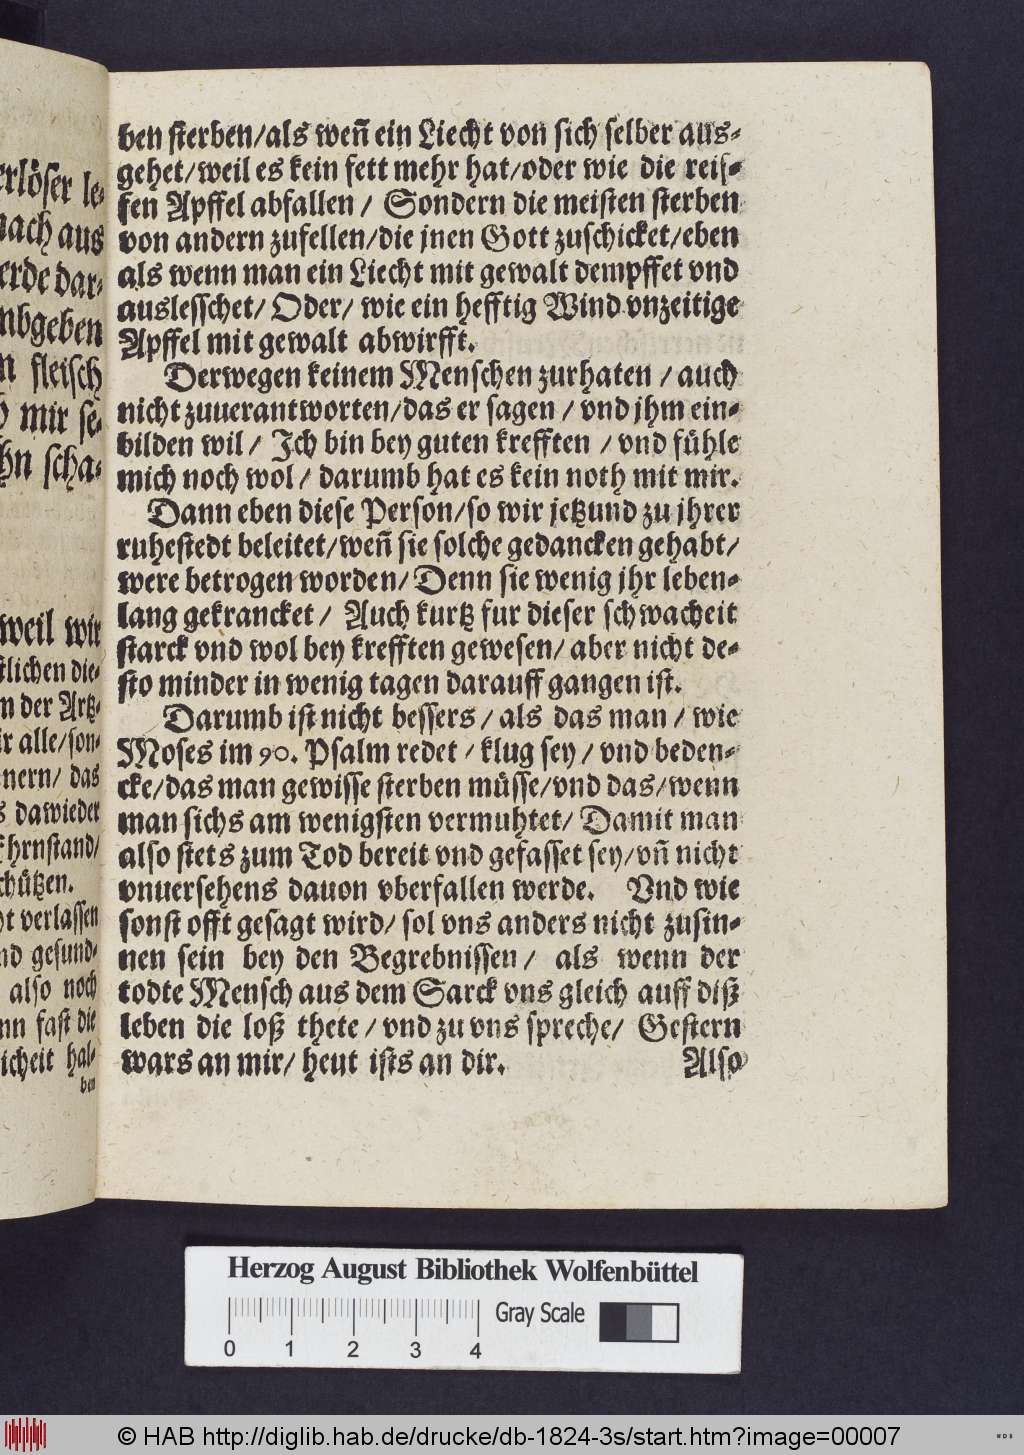 erlöser le-
nach aus
erde dar-
mbgeben
n fleisch
mir se-
hn scha-
weil wir
tlichen die-
n der Artz-
ir alle/son-
nern/ das
s dawieder
Ehrnstand/
chützen.
ht verlassen
nd gesund-
also noch
nn fast die
icheit hal-
ben
ben sterben/als weñ ein Liecht von sich selber aus-
gehet/weil es kein fett mehr hat/oder wie die reif-
fen Apffel abfallen / Sondern die meisten sterben
von andern zufellen/die jnen Gott zuschicket/eben
als wenn man ein Liecht mit gewalt dempffet vnd
auslesschet/ Oder/ wie ein hefftig Wind vnzeitige
Apffel mit gewalt abwirfft.
Derwegen keinem Menschen zurhaten / auch
nicht zuuerantworten/das er sagen / vnd jhm ein-
bilden wil / Ich bin bey guten krefften / vnd fühle
mich noch wol / darumb hat es kein noth mit mir.
Dann eben diese Person/so wir jetzund zu jhrer
ruhestedt beleitet/weñ sie solche gedancken gehabt/
were betrogen worden/ Denn sie wenig jhr leben-
lang gekrancket / Auch kurtz fur dieser schwacheit
starck vnd wol bey krefften gewesen/ aber nicht de-
sto minder in wenig tagen darauff gangen ist.
Darumb ist nicht bessers / als das man / wie
Moses im 90. Psalm redet / klug sey / vnd beden-
cke/das man gewisse sterben müsse/vnd das/wenn
man sichs am wenigsten vermuhtet/ Damit man
also stets zum Tod bereit vnd gefasset sey/vñ nicht
vnuersehens dauon vberfallen werde. Vnd wie
sonst offt gesagt wird/ sol vns anders nicht zusin-
nen sein bey den Begrebnissen / als wenn der
todte Mensch aus dem Sarck vns gleich auff diß
leben die loß thete / vnd zu vns spreche/ Gestern
wars an mir/ heut ists an dir.
Also
Herzog August Bibliothek Wolfenbüttel
0 1 2 3 4 Gray Scale
© HAB http://diglib.hab.de/drucke/db-1824-3s/start.htm?image=00007